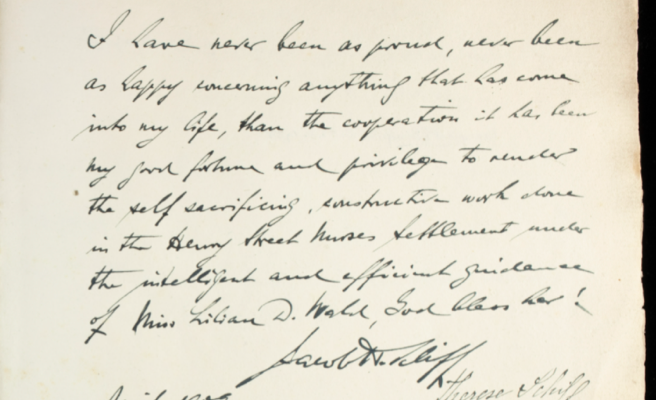 I have never been as proud, never been
as happy concerning anything that has come
into my life, than the cooperation it has been
my good fortune and privilege to render
the self sacrificing, constructive work done
in the Henry Street Nurses Settlement under
the intelligent and efficient guidance
of Miss Lilian D. Wald, God bless her!
Jacob H. Schiff
Therese Schiff